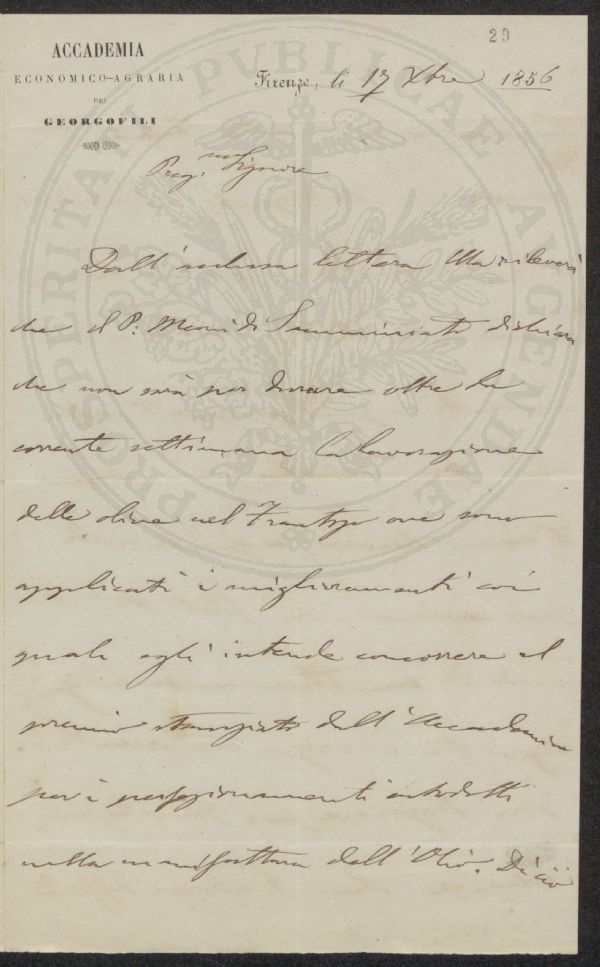 29
ACCADEMIA
ECONOMICO-AGRARIA
DEI
GEORGOFILI
Firenze, li 17 Xbre 1856
Preg.mo Signore
Dall'inclusa lettera Ella rileverà
che il P: di Samminiato dichiara
che non sarà per durare oltre la
corrente settimana la lavorazione
delle olive nel Frantojo ove sono
applicati i miglioramenti coi
quali egli intende concorrere al
premio stampato dall'Accademia
per i perfezionamenti introdotti
nella manifattura dell'Olio. Di ciò
PROSPERITATI PVBLICAE AVGENDAE